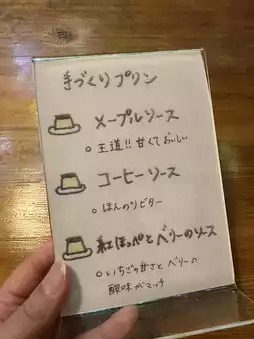 手づくりプリン
メープルソース
○ 王道!! 甘くておいしい
コーヒーソース
○ ほんのりビター
紅ほっぺとベリーのソース
○ いちごの甘さと ベリーの
酸味がマッチ